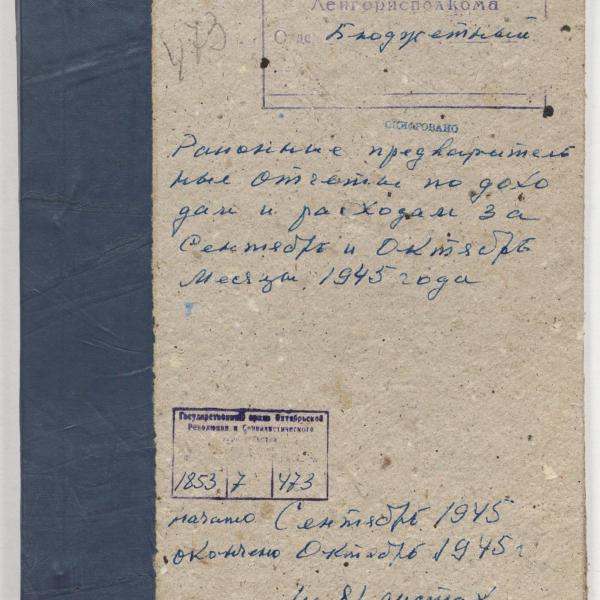 473
Ленгорисполкома
Отдел Бюджетный
ОШИФРОВАНО
Районные предваритель
ные отчеты по дохо
дам и расходам за
Сентябрь и Октябрь
Месяцы 1945 года
Государственный архив Октябрьской
Революции и Социалистического
1853 7 473
начато Сентябрь 1945
окончено Октябрь 1945 г
81 листах